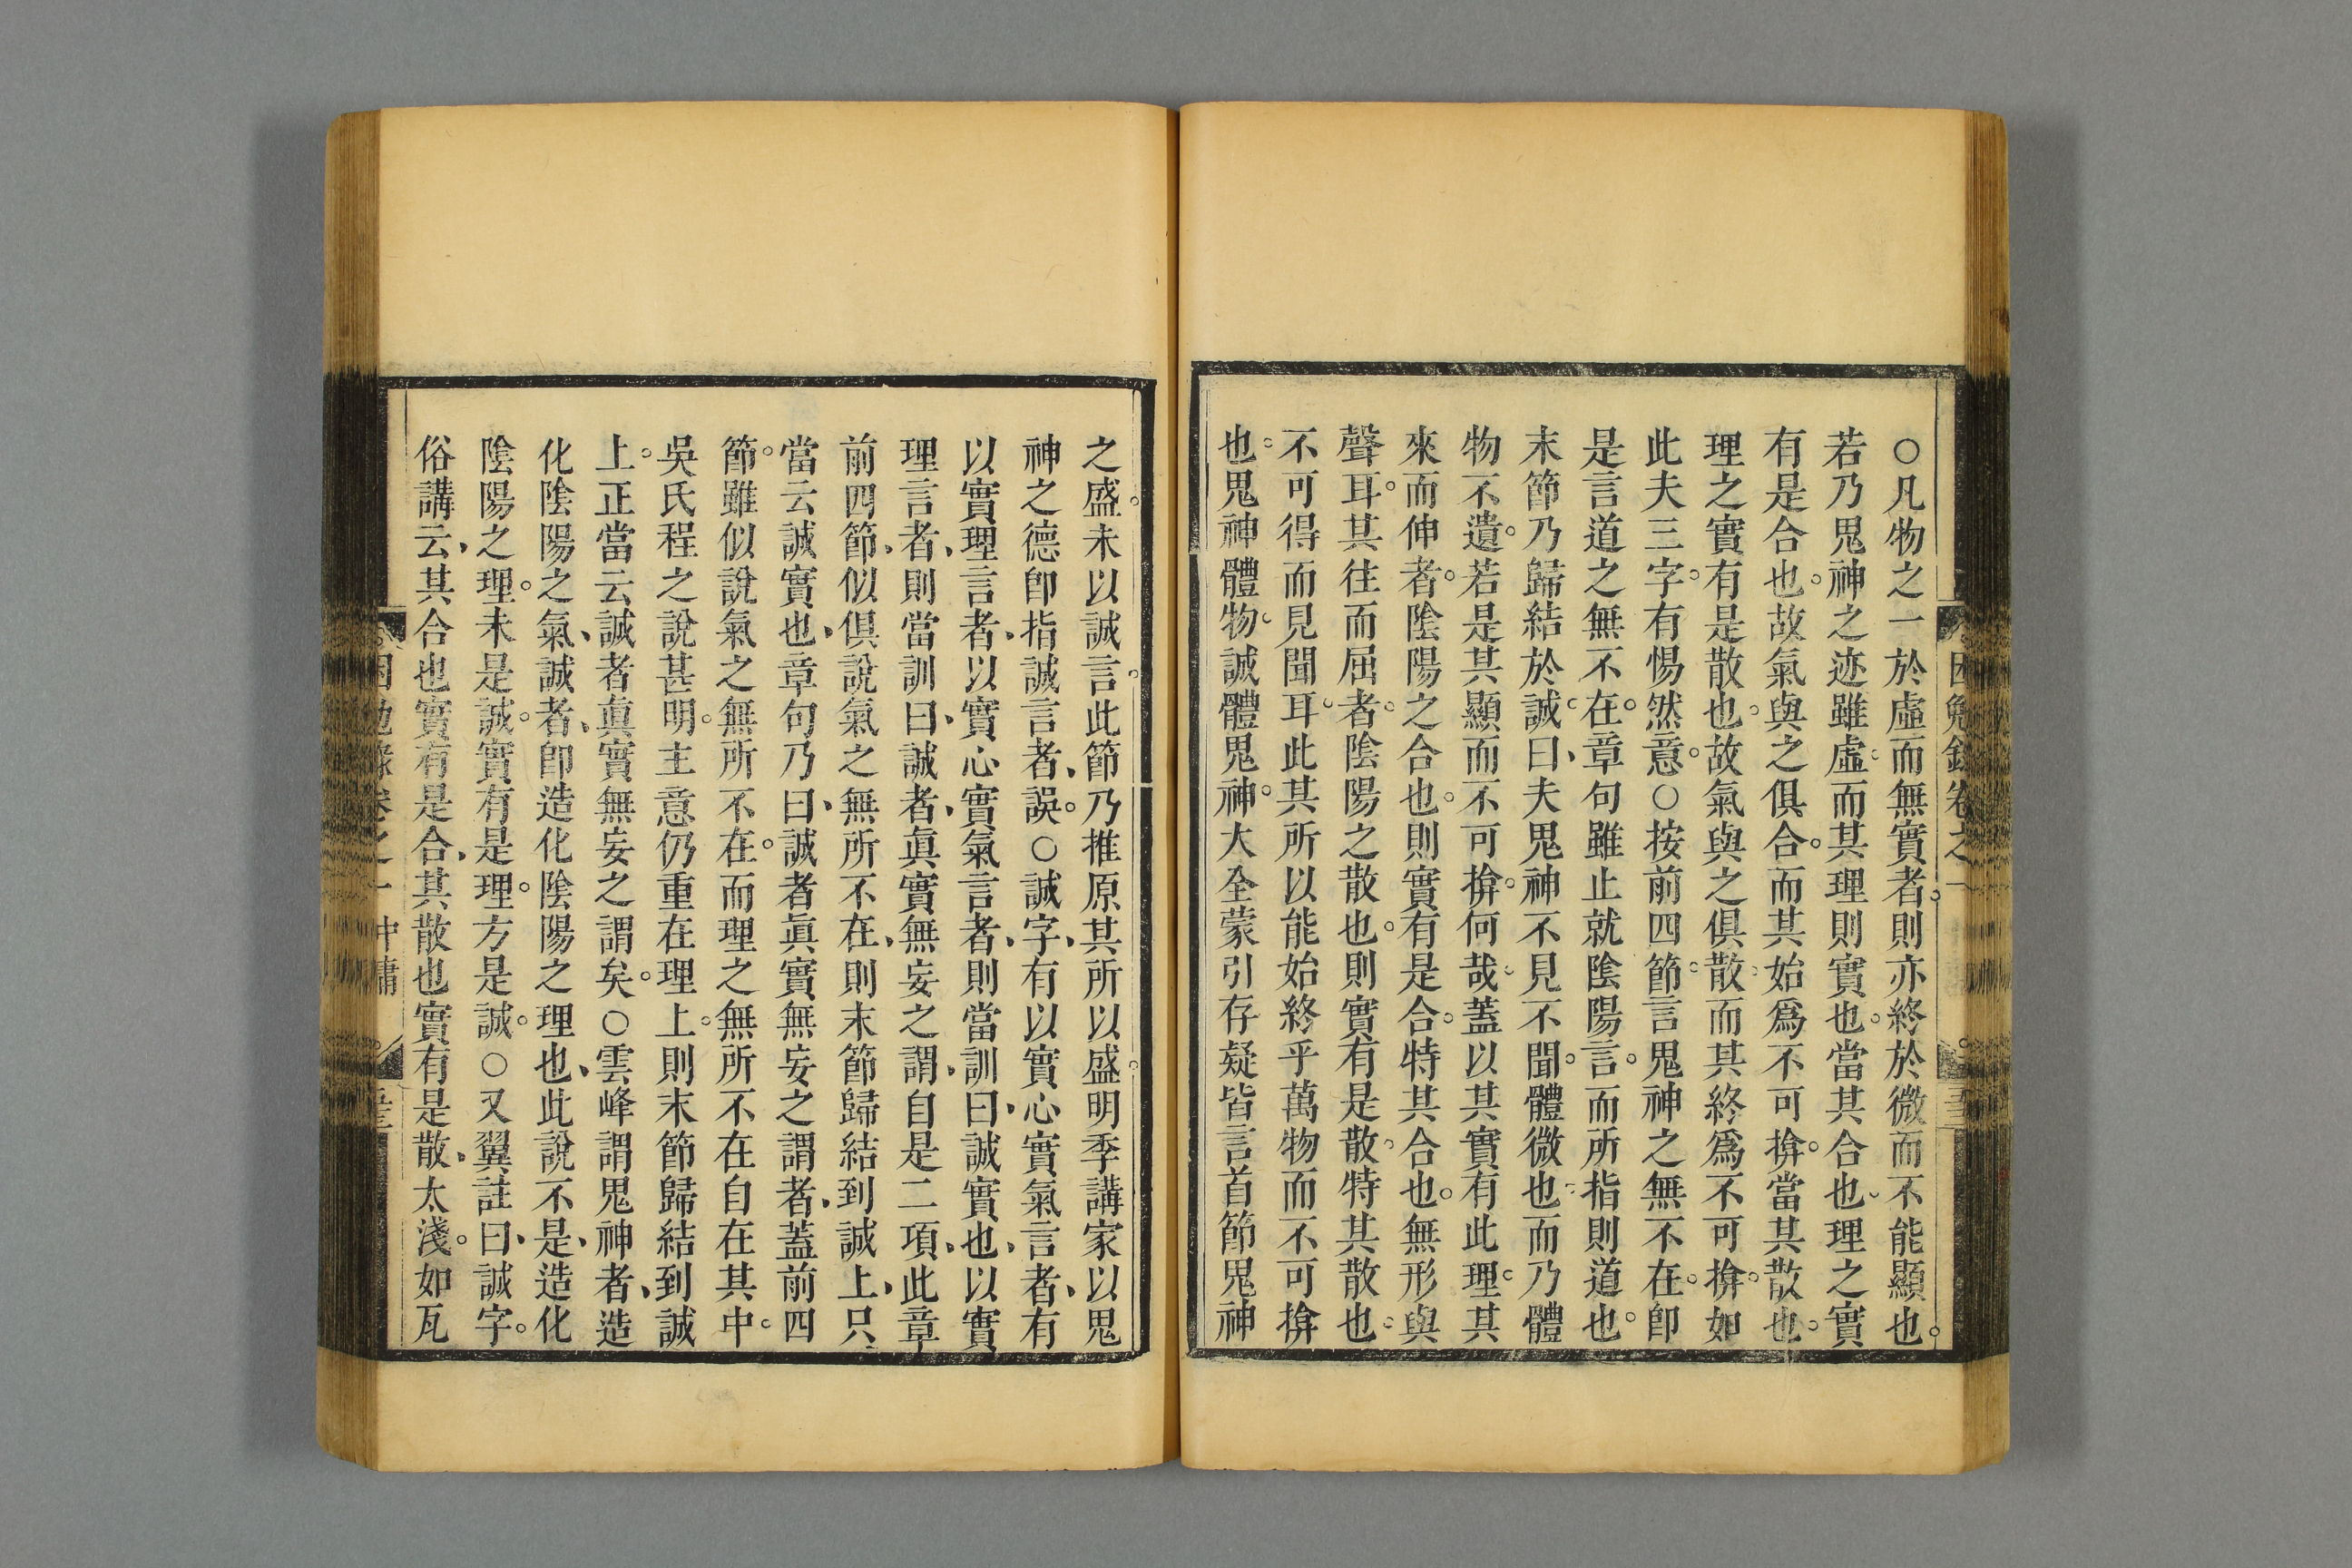 ○凡物之一於虛而無實者則亦終於微而不能顯也
若乃鬼神之迹雖虛而其理則實也當其合也理之實
有是合也故氣與之俱合而其始爲不可揜當其散也
理之實有是散也故氣與之俱散而其終爲不可揜如
此夫三字有惕然意○按前四節言鬼神之無不在卽
是言道之無不在章句雖止就陰陽言而所指則道也
末節乃歸結於誠曰夫鬼神不見不聞體微也而乃體
物不遺若是其顯而不可揜何哉蓋以其實有此理其
來而伸者陰陽之合也則實有是合特其合也無形與
聲耳其往而屈者陰陽之散也則實有是散特其散也
不可得而見聞耳此其所以能始終乎萬物而不可揜
也鬼神體物誠體鬼神大全蒙引存疑皆言首節鬼神
之盛未以誠言此節乃推原其所以盛明季講家以鬼
神之德卽指誠言者誤○誠字有以實心實氣言者有
以實理言者以實心實氣言者則當訓曰誠實也以實
理言者則當訓曰誠者眞實無妄之謂自是二項此章
前四節似俱說氣之無所不在則末節歸結到誠上只
當云誠實也章句乃曰誠者眞實無妄之謂者蓋前四
節雖似說氣之無所不在而理之無所不在自在其中
吳氏程之說甚明主意仍重在理上則末節歸結到誠
上正當云誠者眞實無妄之謂矣○雲峰謂鬼神者造
化陰陽之氣誠者卽造化陰陽之理也此說不是造化
陰陽之理未是誠實有是理方是誠○又翼註曰誠字
俗講云其合也實有是合其散也實有是散太淺如瓦
困勉錄卷之一 中庸